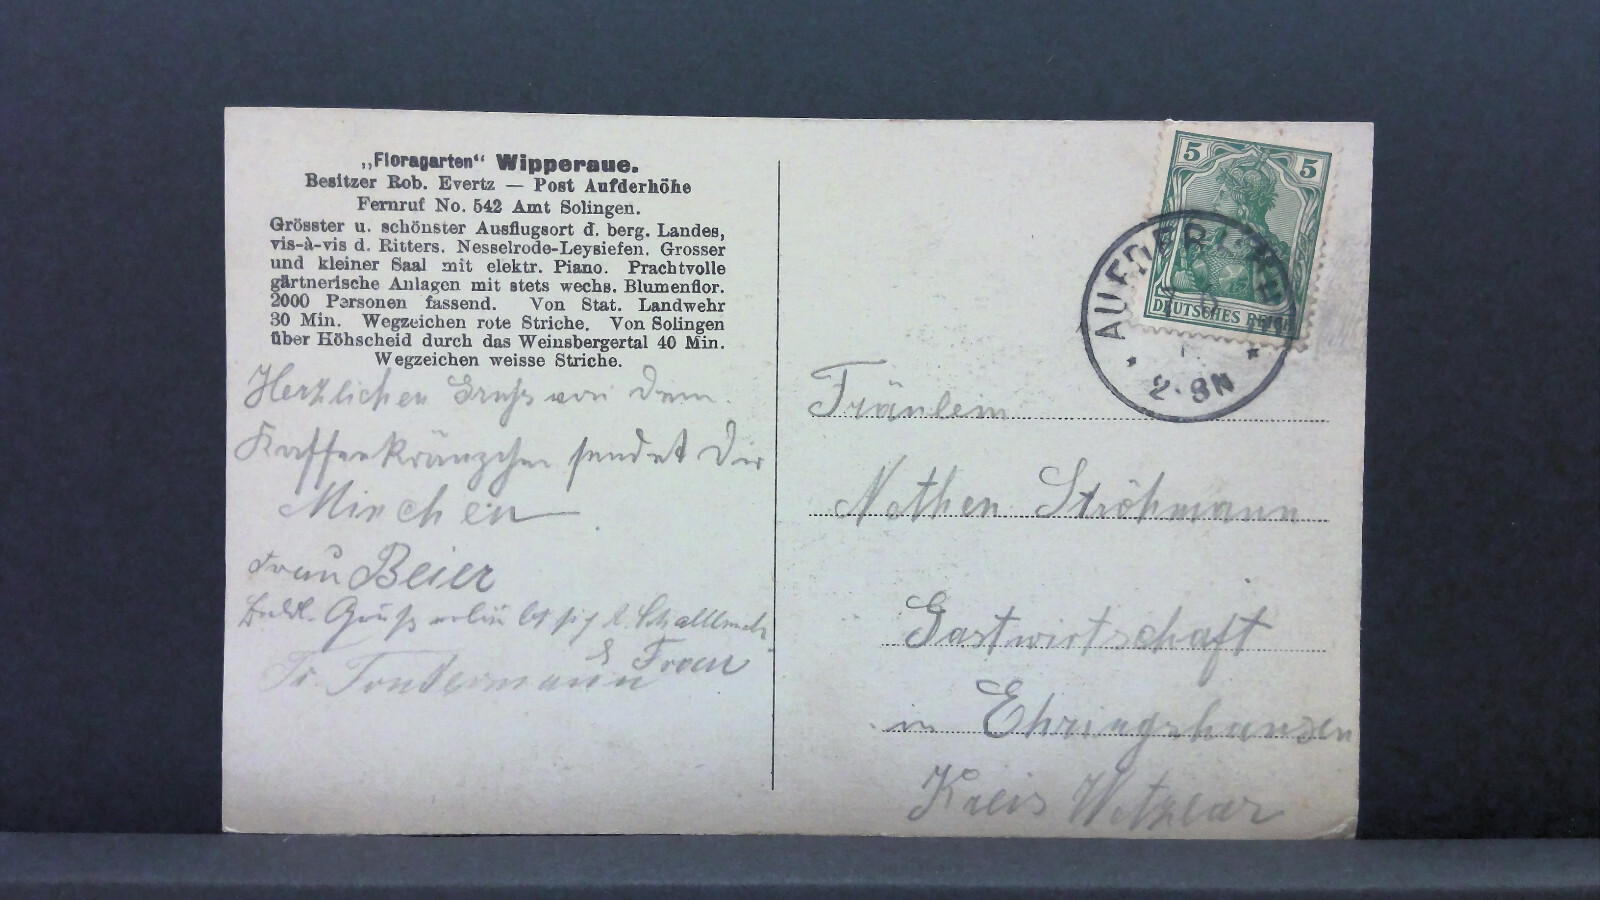 „Floragarten“ Wipperaue.
Besitzer Rob. Evertz — Post Aufderhöhe
Fernruf No. 542 Amt Solingen.
Grösster u. schönster Ausflugsort d. berg. Landes,
vis-à-vis d. Ritters. Nesselrode-Leysiefen. Grosser
und kleiner Saal mit elektr. Piano. Prachtvolle
gärtnerische Anlagen mit stets wechs. Blumenflor.
2000 Personen fassend. Von Stat. Landwehr
30 Min. Wegzeichen rote Striche. Von Solingen
über Höhscheid durch das Weinsbergertal 40 Min.
Wegzeichen weisse Striche.
Herzlichen Gruss von dem
Kaffeekränzchen sendet Dir
Minchen
Frau Beier
Gruß
Fr. Tondermann & Frau
5 5
DEUTSCHES REICH
2-8N
Fräulein
Ströhmann
Gastwirtschaft
in Ehringshausen
Kreis Wetzlar